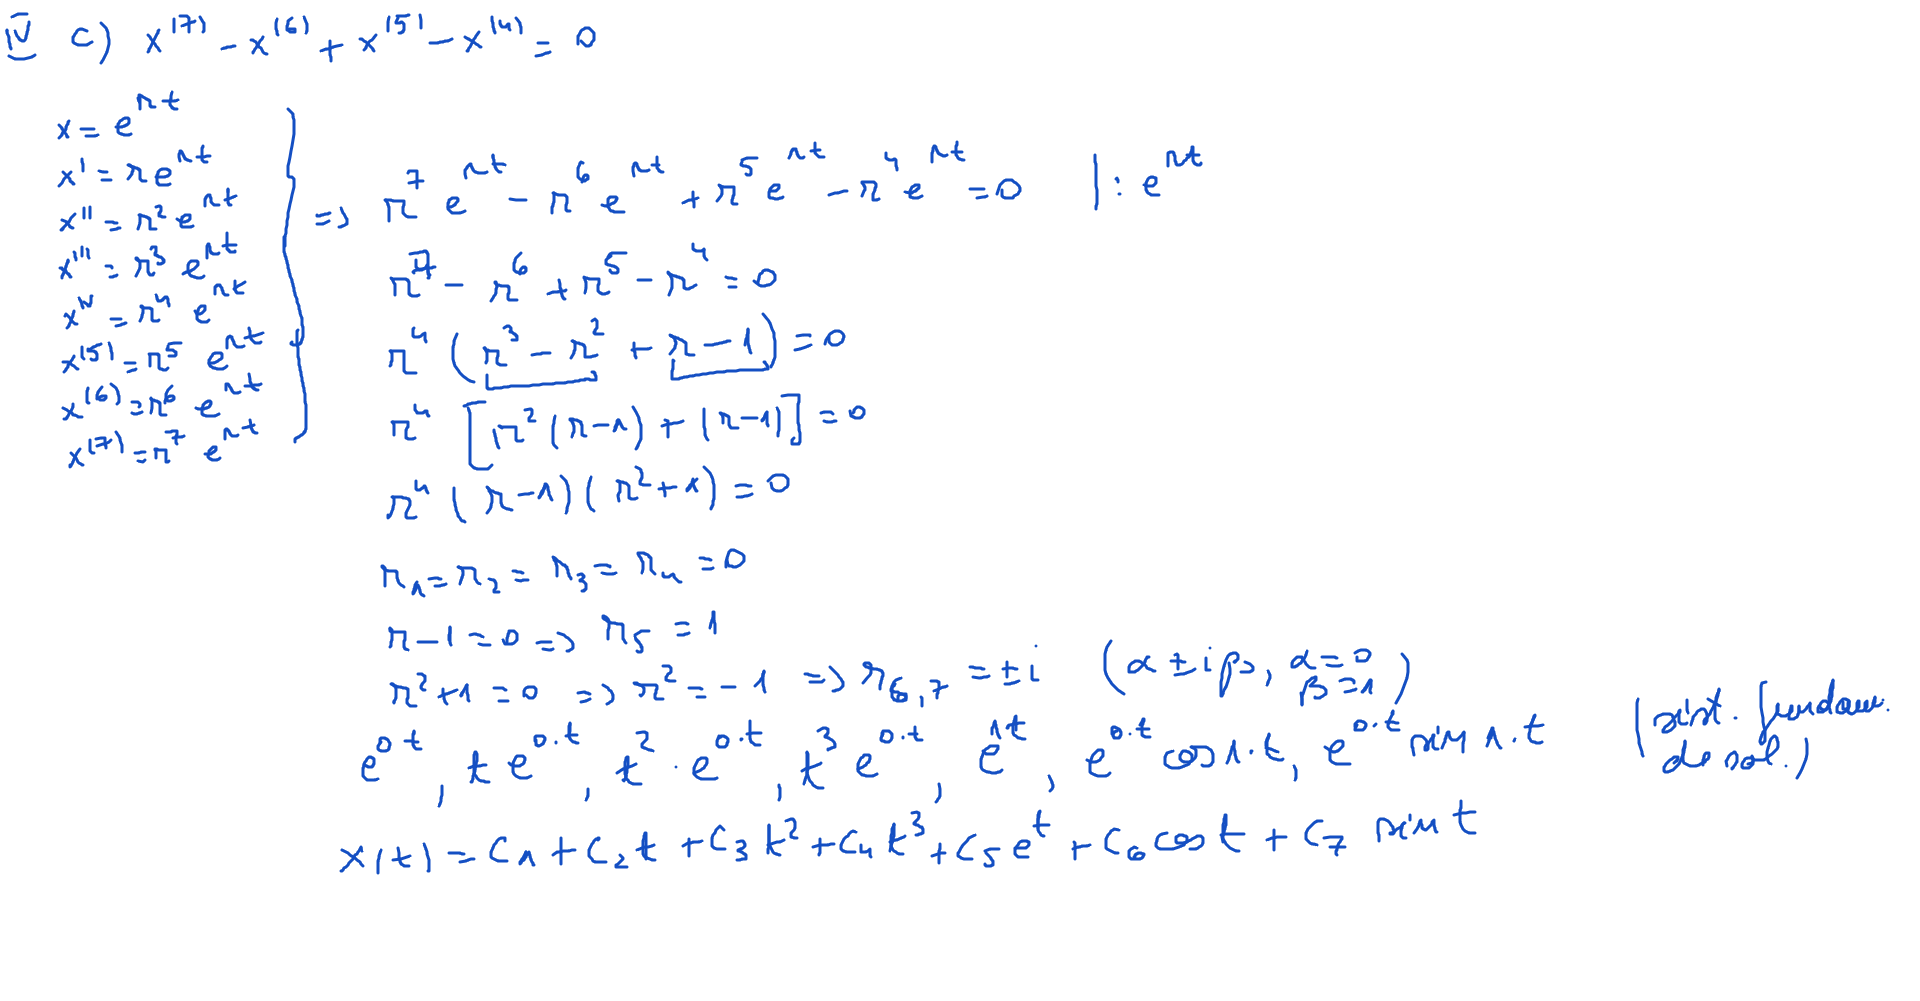 IV c) x^(7) - x^(6) + x^(5) - x^(4) = 0
x = e^rt
x' = r e^rt
x'' = r² e^rt
x''' = r³ e^rt
x^IV = r⁴ e^rt
x^(5) = r⁵ e^rt
x^(6) = r⁶ e^rt
x^(7) = r⁷ e^rt
=> r⁷ e^rt - r⁶ e^rt + r⁵ e^rt - r⁴ e^rt = 0 | : e^rt
r⁷ - r⁶ + r⁵ - r⁴ = 0
r⁴ (r³ - r² + r - 1) = 0
r⁴ [r² (r-1) + (r-1)] = 0
r⁴ (r-1)(r²+1) = 0
r₁ = r₂ = r₃ = r₄ = 0
r-1 = 0 => r₅ = 1
r²+1 = 0 => r² = -1 => r₆,₇ = ±i (α ± iβ, α = 0 β = 1)
e^0·t, t e^0·t, t² · e^0·t, t³ e^0·t, e^1t, e^0·t cos 1·t, e^0·t sin 1·t (sist. fundam. de sol.)
x(t) = c₁ + c₂t + c₃t² + c₄t³ + c₅e^t + c₆ cos t + c₇ sin t